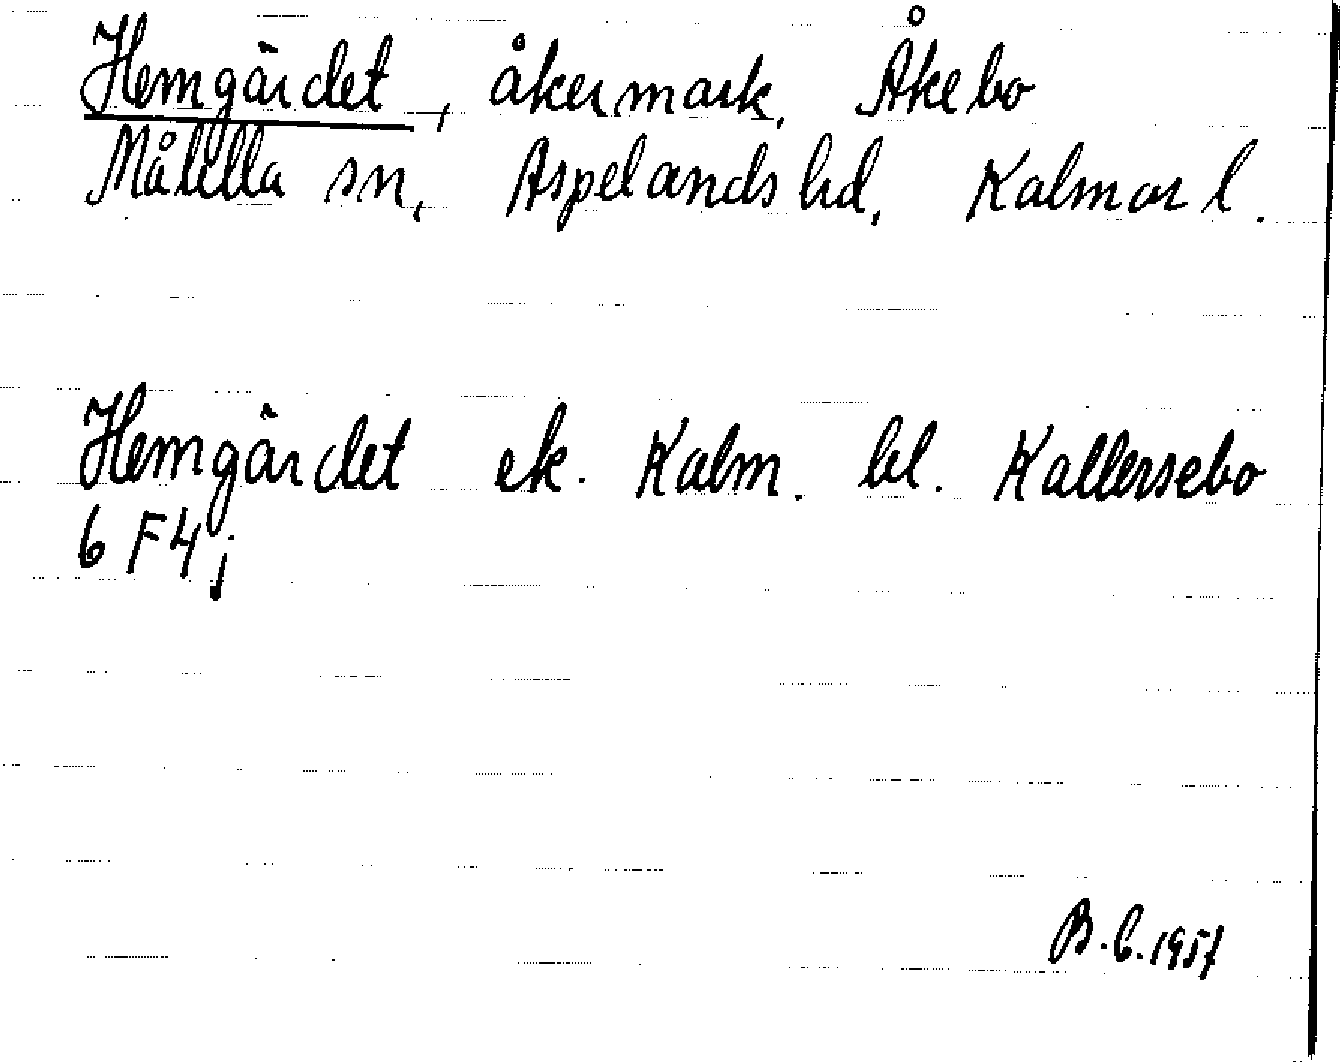 Hemgärdet, åkermark, Åkebo
Målilla sn, Aspelands hd, Kalmar l.
Hemgärdet ek. Kalm. bl. Kallersebo
6 F4j
B.C. 1957